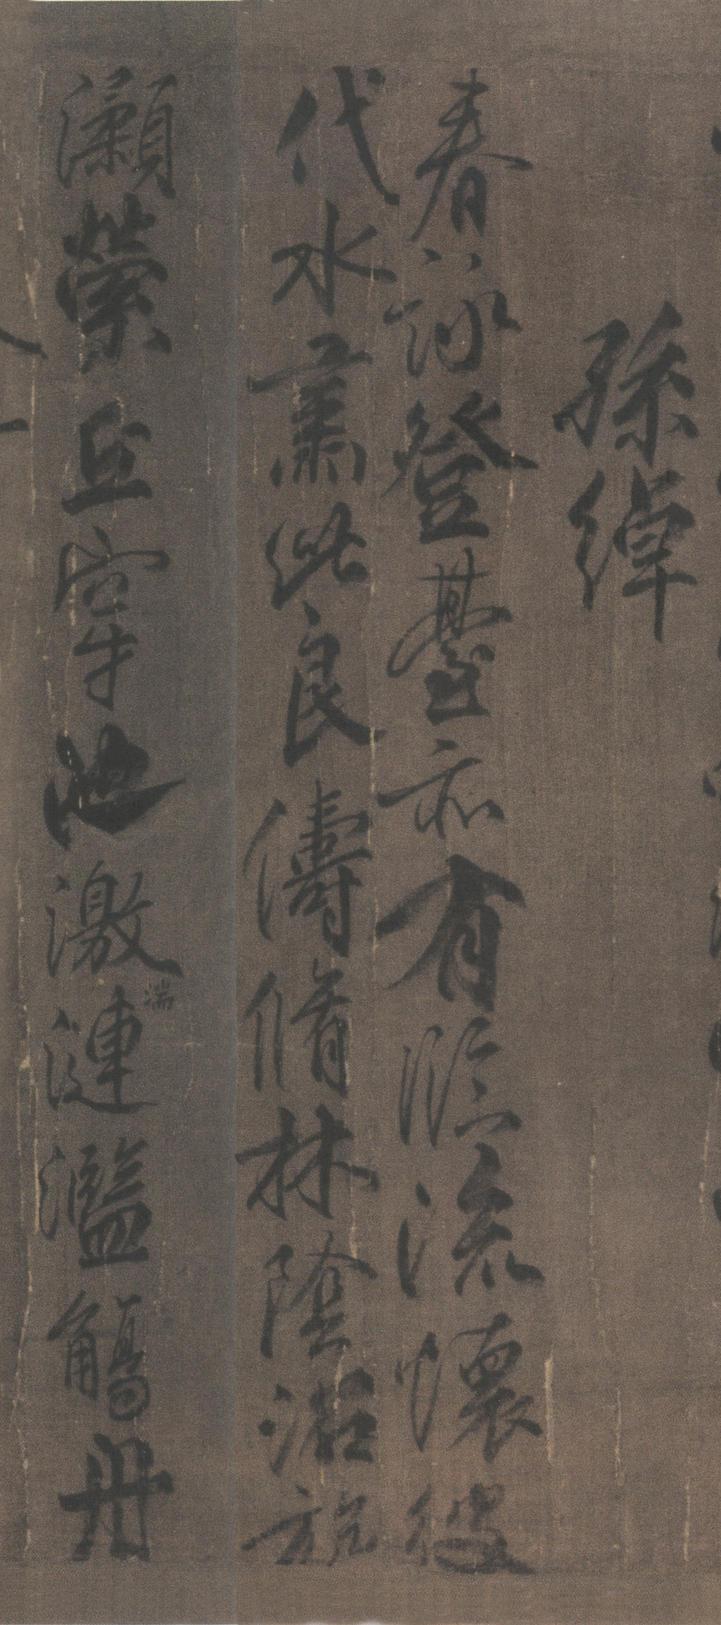 孫綽
春詠登臺亦有臨流懷彼
代水肅此良儔脩林陰沼旋
瀨縈丘穿池激湍漣濫觴舟